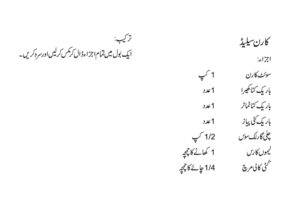 کارن سیلیڈ
اجزاء:
سوئٹ کارن 1 کپ
باریک کٹا کھیرا 1 عدد
باریک کٹا ٹماٹر 1 عدد
باریک کٹی پیاز 1 عدد
چلی گارلک سوس 1/2 کپ
لیموں کا رس 1 کھانے کا چمچہ
کٹی کالی مرچ 1/4 چائے کا چمچہ
ترکیب:
ایک بول میں تمام اجزاء ڈال کر مکس کر لیں اور سرو کریں۔